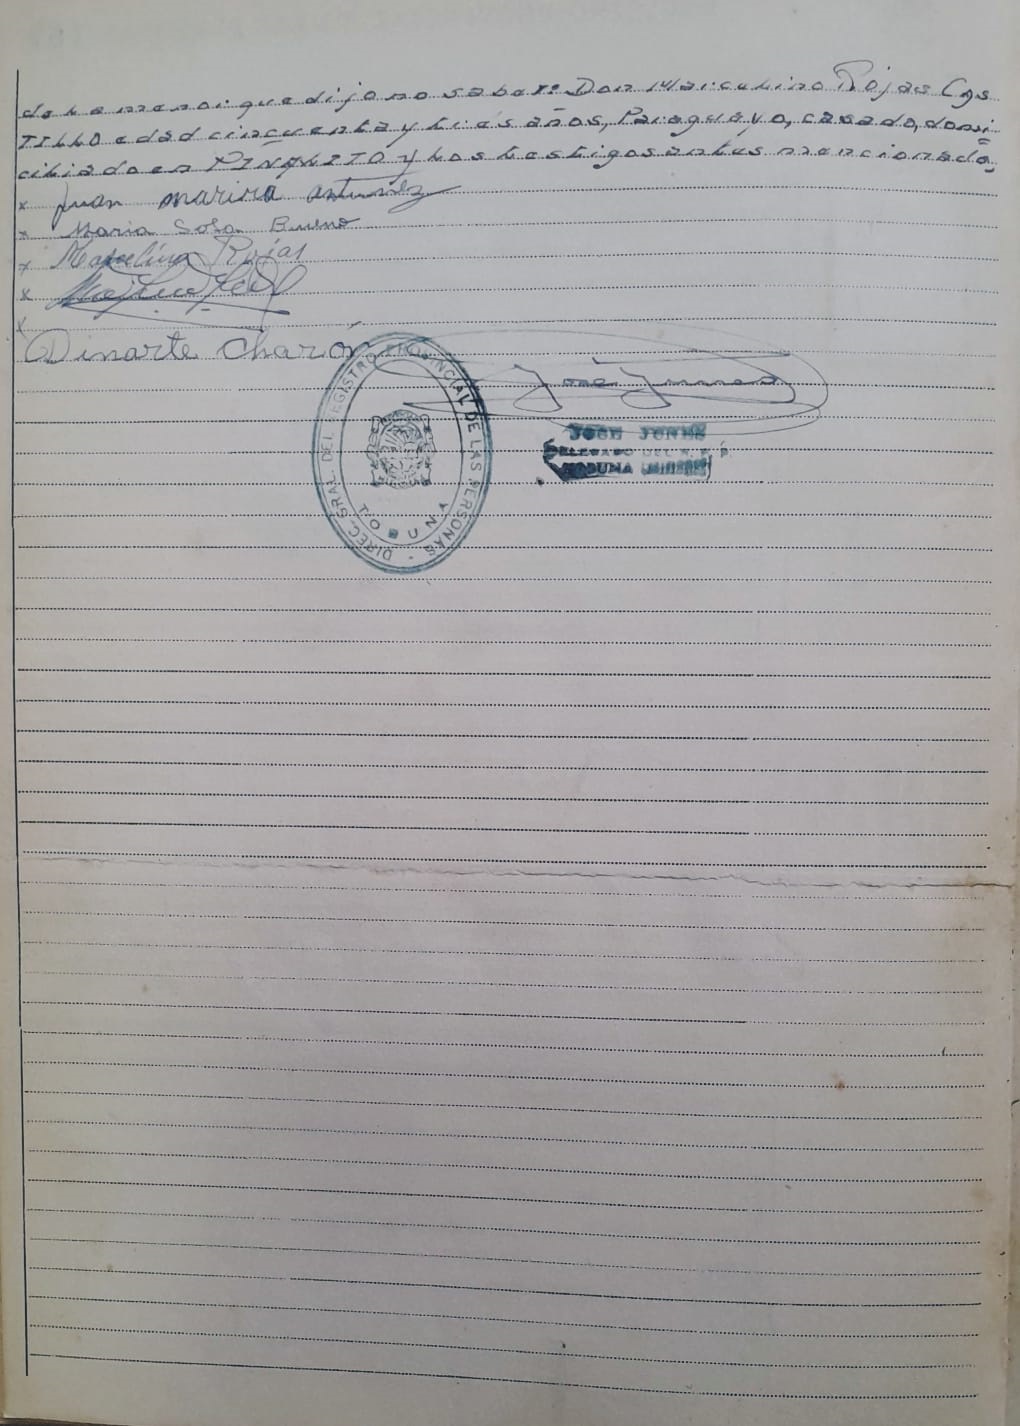 de la menor que dijo no saber: Don Marcelino Rojas Cas
TILLO edad cincuenta y tres años, Paraguayo, casado, domi
ciliado en PIÑALITO y los testigos antes mencionados
x Juan marira antunez
x Maria Sosa Bueno
x Marcelino Rojas
x
x
Dinarte Charón
DIREC. GRAL. DEL REGISTRO PROVINCIAL DE LAS PERSONAS
TOBUNA
José Junes
JOSE JUNES
DELEGADO DEL R. P. P.
TOBUNA (MISIONES)